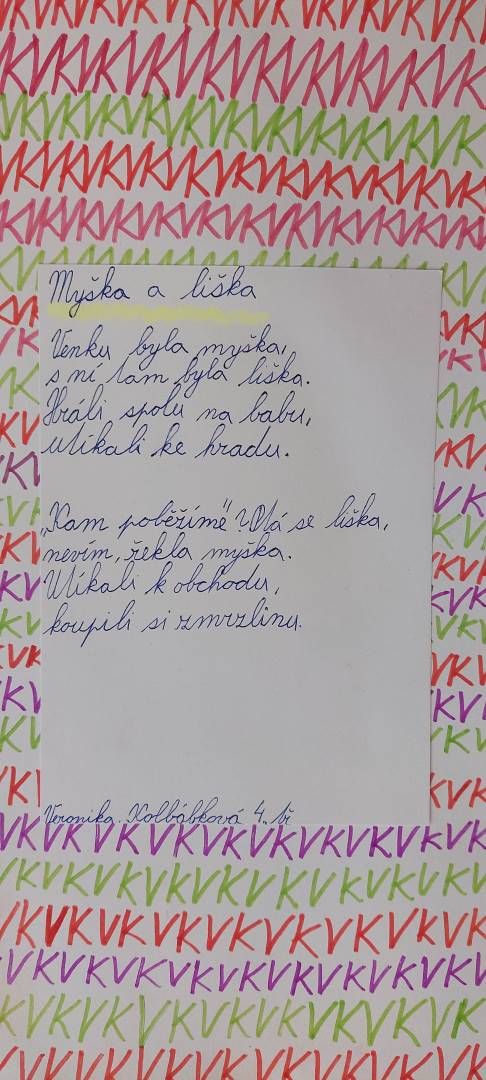 Myška a liška
Venku byla myška,
s ní tam byla liška.
Hráli spolu na babu,
utíkali ke hradu.
„Kam poběžíme“? Ptá se liška,
nevím, řekla myška.
Utíkali k obchodu,
koupili si zmrzlinu.
Veronika Kolbábková 4. tř